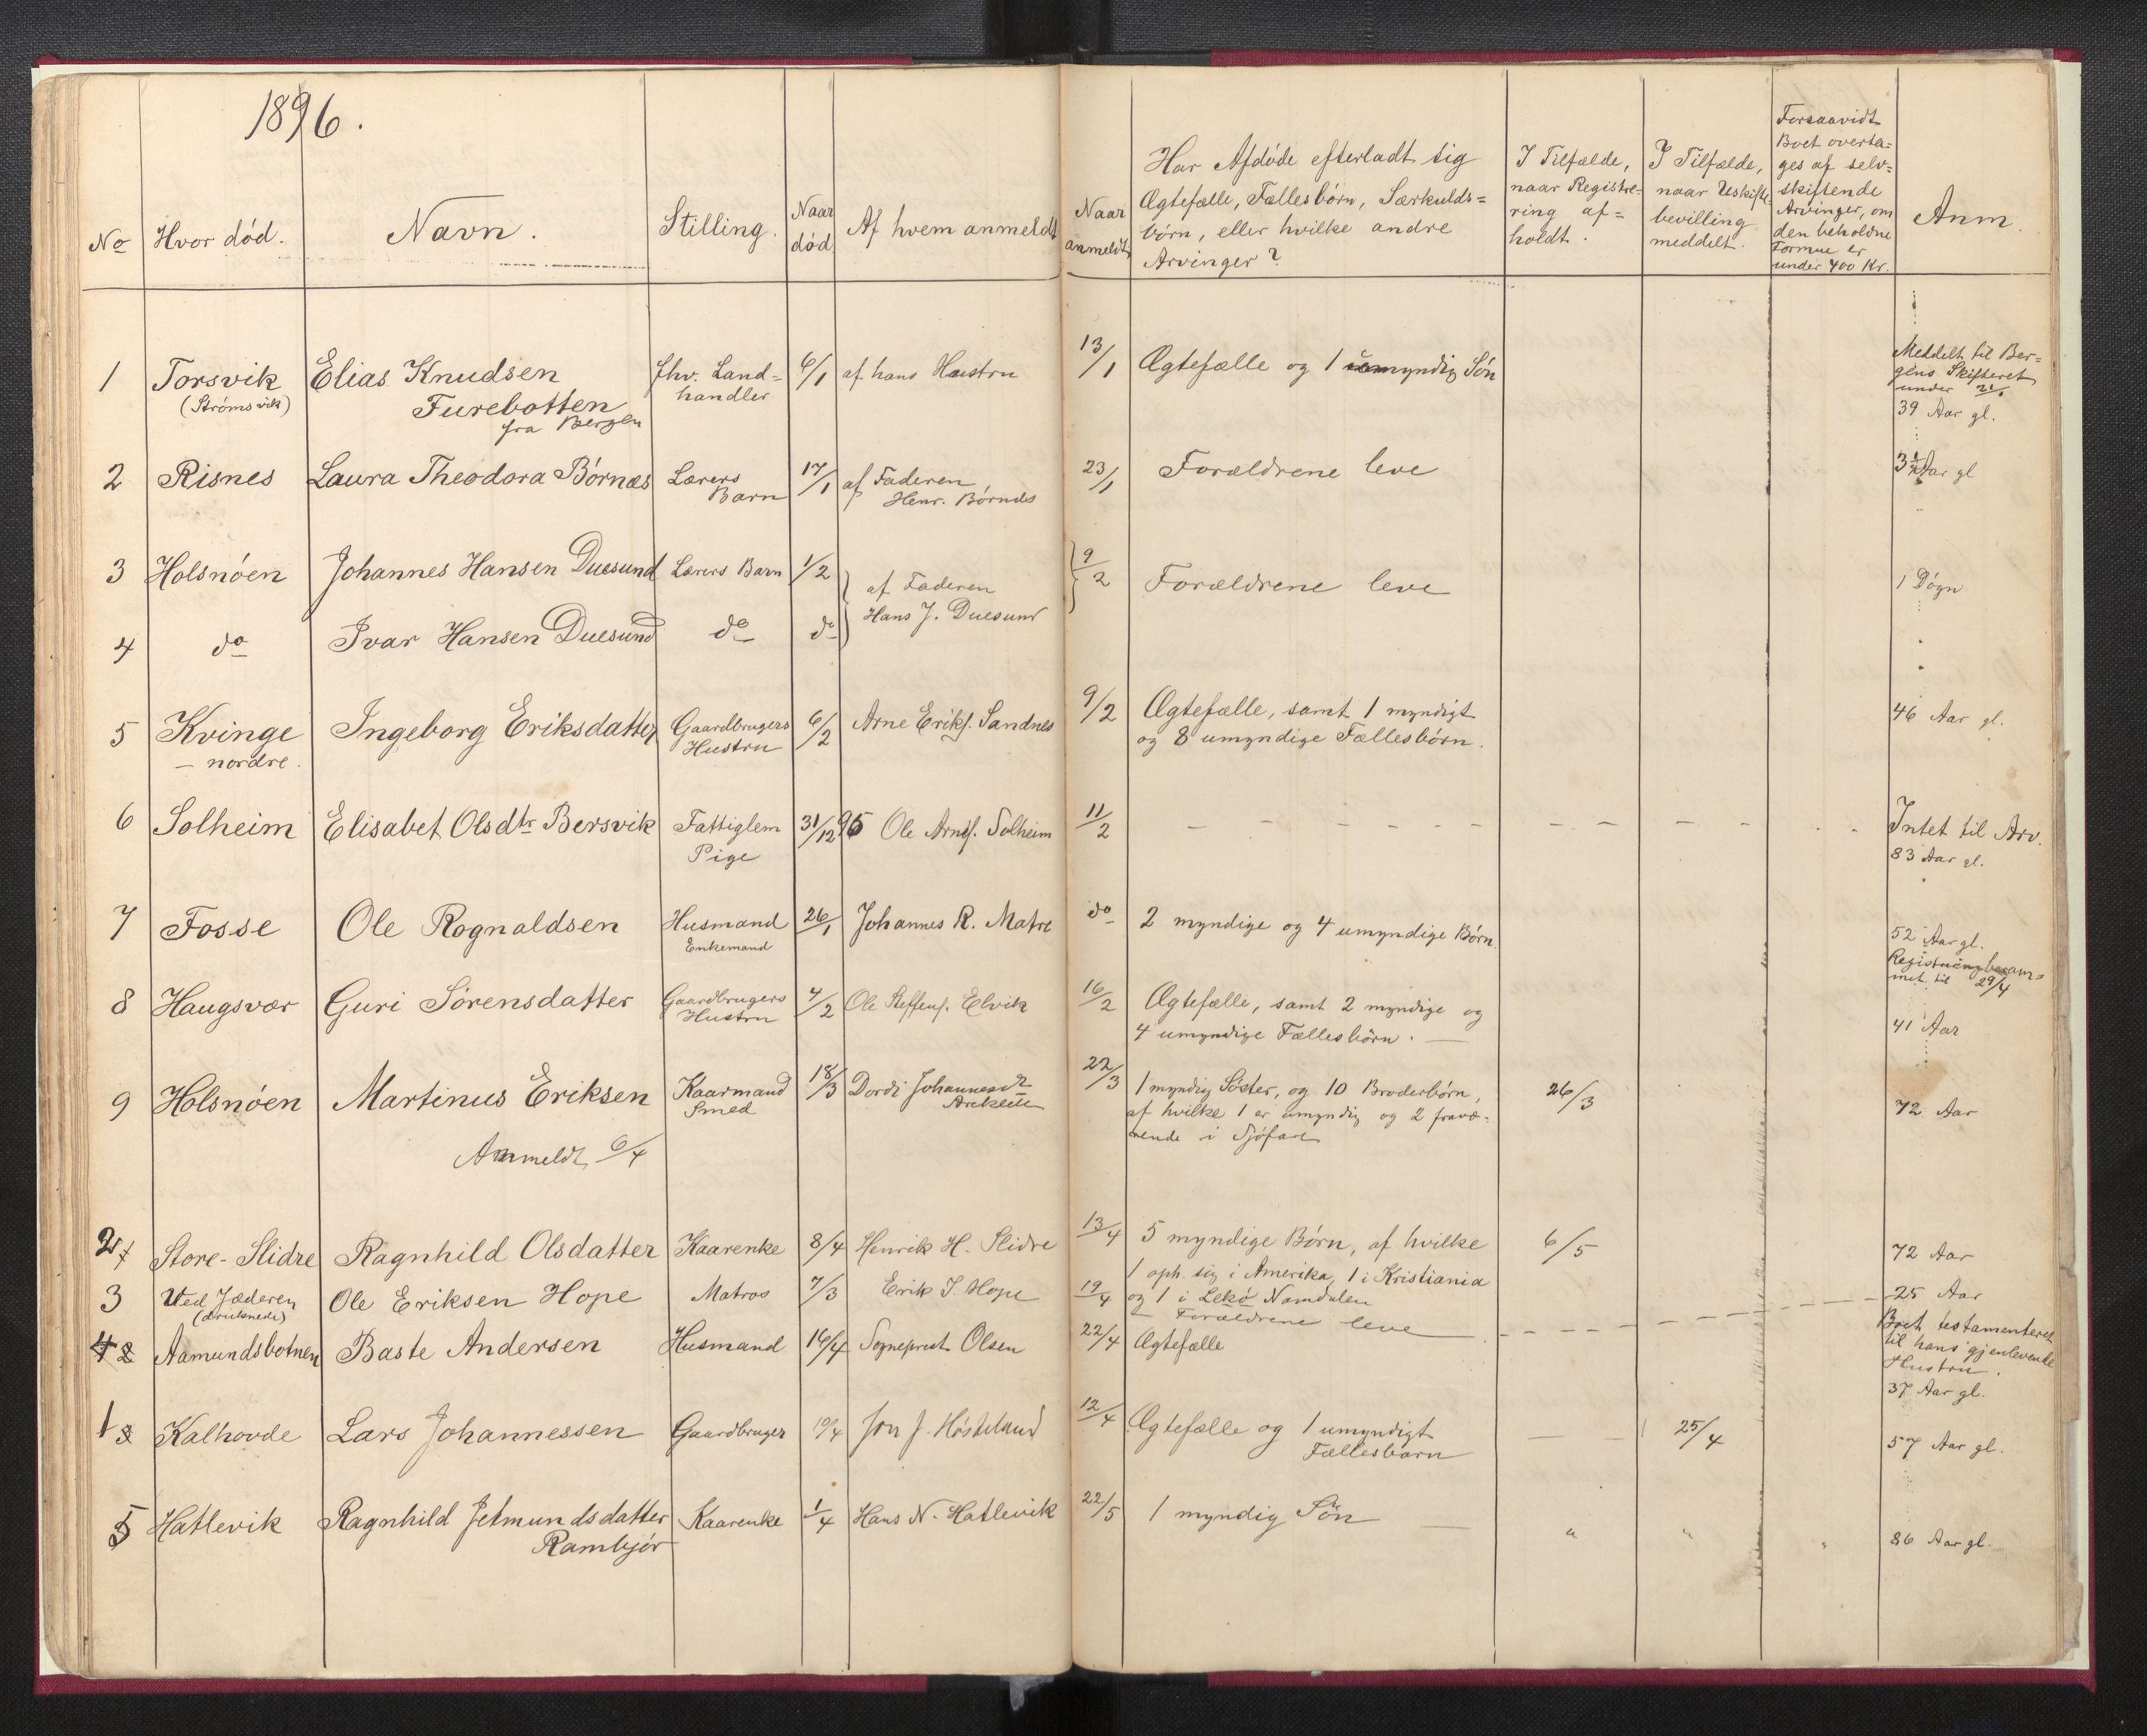 1896.
No
Hvor död.
Navn.
Stilling.
Naar död
Af hvem anmeldt
Naar anmeldt
Har Afdöde efterladt sig
Ægtefælle, Fællesbörn, Særkulds=
börn, eller hvilke andre
Arvinger?
I Tilfælde,
naar Registre-
ring af=
holdt.
I Tilfælde,
naar Uskifte-
bevilling
meddelt.
Forsaavidt
Boet overta=
ges af selv=
skiftende
Arvinger, om
den beholdne
Formue er
under 400 Kr.
Anm.
1 Torsvik Elias Knudsen Fhv. Land= 6/1 af hans Hustru 13/1 Ægtefælle og 1 umyndig Sön Meddelt til Ber=
(Strömsvik) Furebotten handler gens Skifteret
fra Bergen under 21/1
39 Aar gl.
2 Risnes Laura Theodora Börnæs Lærers 17/1 af Faderen 23/1 Forældrene leve 3 1/2 Aar gl
Barn Henr. Börnæs
3 Holsnöen Johannes Hansen Duesund Lærers Barn 1/2 af Faderen 9/2 Forældrene leve 1 Dögn
4 do Ivar Hansen Duesund do do Hans J. Duesund
5 Kvinge Ingeborg Eriksdatter Gaardbrugers 6/2 Arne Eriks. Sandnes 9/2 Ægtefælle, samt 1 myndigt 46 Aar gl.
– nordre. Hustru og 8 umyndige Fællesbörn.
6 Solheim Elisabet Olsdtr Bersvik Fattiglem 31/12 95 Ole Arnes. Solheim 11/2 – – – – – – – – – – Intet til Arv.
Pige 83 Aar gl.
7 Fosse Ole Rognaldsen Husmand 26/1 Johannes R. Matre do 2 myndige og 4 umyndige Börn. 52 Aar gl.
Enkemand Registrering beram=
met til 29/4
8 Haugsvær Guri Sörensdatter Gaardbrugers 4/2 Ole Steffens. Elvik 16/2 Ægtefælle, samt 2 myndige og 41 Aar
Hustru 4 umyndige Fællesbörn. —
9 Holsnöen Martinus Eriksen Kaarmand 18/3 Dordi Johannesdr 22/3 1 myndig Söster, og 10 Broderbörn, 26/3 72 Aar
Smed af hvilke 1 er umyndig og 2 fravæ-
Anmeldt 6/4 rende i Sjöfart
2 Store-Slidre Ragnhild Olsdatter Kaarenke 8/4 Henrik H. Slidre 13/4 5 myndige Börn, af hvilke 6/5 72 Aar
1 oph. sig i Amerika, 1 i Kristiania
og 1 i Lekö Namdalen
3 Ved Jæderen Ole Eriksen Hope Matros 7/3 Erik I. Hope 19/4 Forældrene leve – – – – – – – 25 Aar
(druknede)
4 Aamundsbotnen Baste Andersen Husmand 16/4 Sogneprest Olsen 22/4 Ægtefælle Boet testamenteret
til hans gjenlevende
Hustru.
37 Aar gl.
1 Kalhovde Lars Johannessen Gaardbruger 10/4 Jon J. Hösteland 12/4 Ægtefælle og 1 umyndigt — — 25/4 57 Aar gl.
Fællesbarn
5 Hatlevik Ragnhild Jetmundsdatter Kaarenke 1/4 Hans N. Hatlevik 22/5 1 myndig Sön — " " " 86 Aar gl.
Rambjör